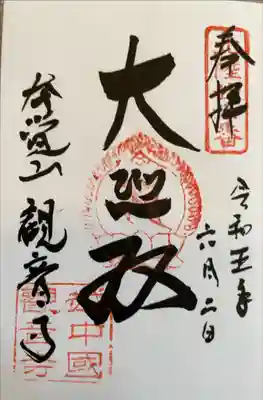 奉拝
令和五年
六月二日
大悲殿
本覚山 観音寺
中國